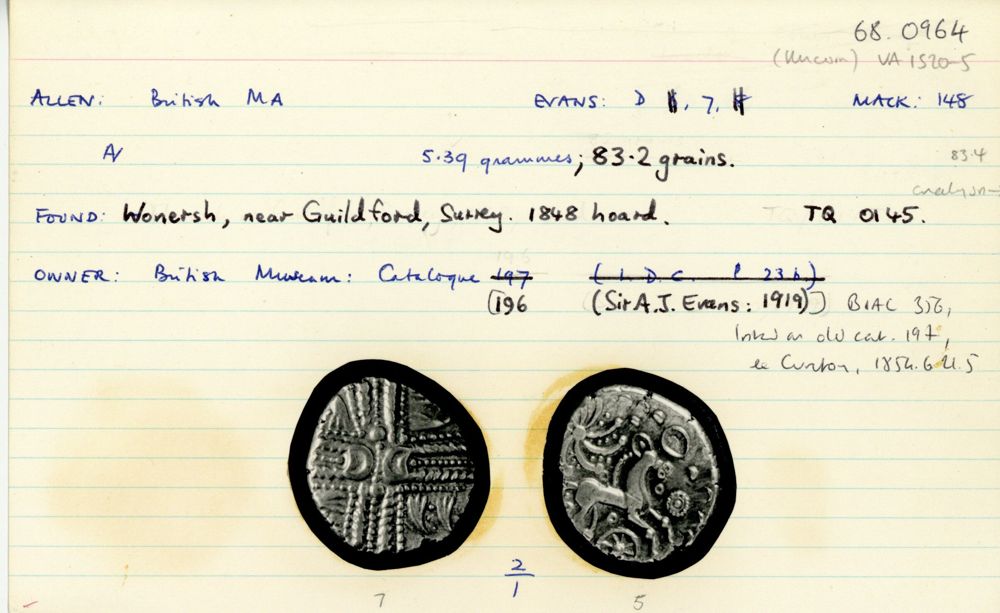 68.0964
(Uncorn) VA 1520-5
ALLEN: British MA EVANS: D 7, MACK: 148
5.39 grammes; 83.2 grains. 83.4
FOUND: Wonersh, near Guildford, Surrey. 1848 hoard. TQ 0145.
196
OWNER: British Museum: Catalogue 197 (I. D. C. P 23b)
[196 (Sir A.J. Evans: 1919)] BIAC 356,
on old cat. 197,
ex Curzon, 1854.6.21.5
2
1
7 5